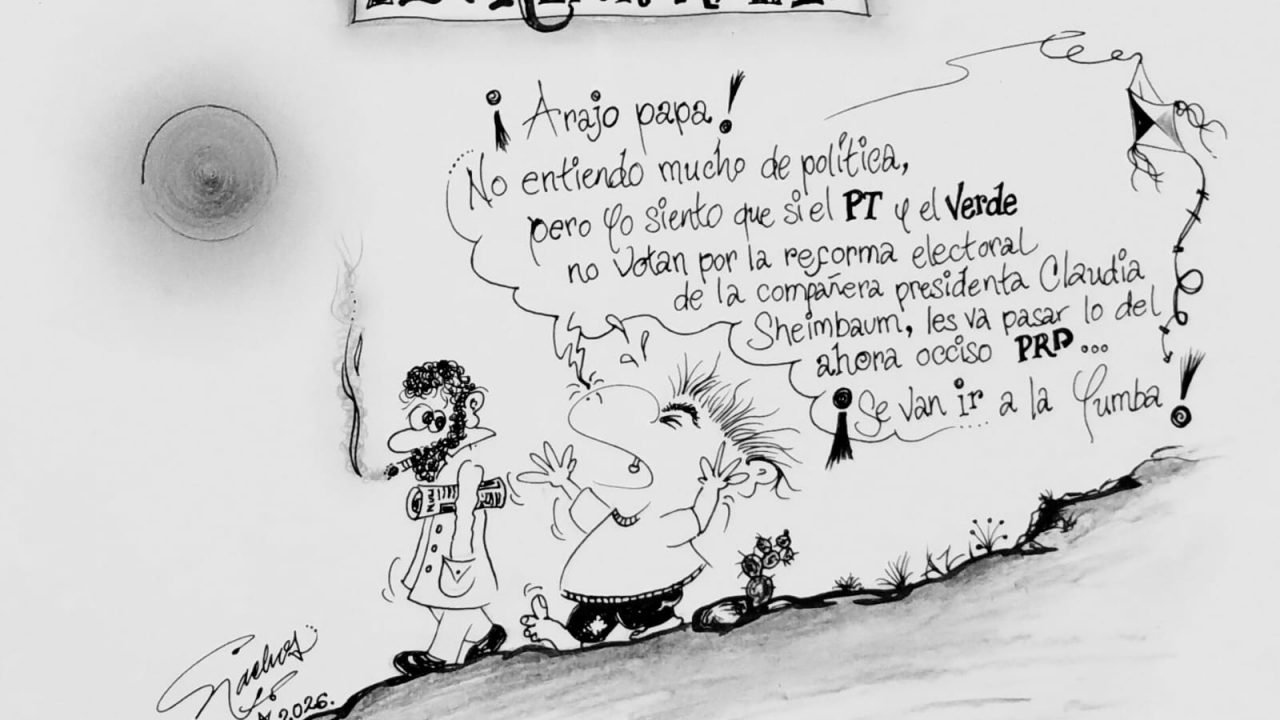 ¡Arajo papa!
No entiendo mucho de política,
pero yo siento que si el PT y el Verde
no votan por la reforma electoral
de la compañera presidenta Claudia
Sheimbaum, les va pasar lo del
ahora occiso PRD...
¡Se van ir a la Yumba!
2026.